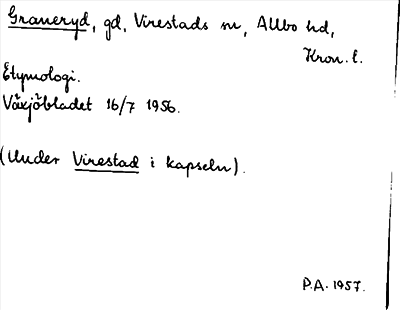 Graneryd, gd, Virestads sn, Allbo hd,
Kron. l.
Etymologi.
Växjöbladet 16/7 1956.
(Under Virestad i kapseln).
P.A. 1957.